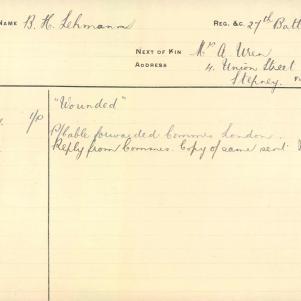 NAME B. H. Lehmann REG. &C. 27th Batt
NEXT OF KIN Mrs A Wren
ADDRESS 4. Union Street
Stepney.
1/0 "Wounded"
P/Cable forwarded Commes London.
Reply from Commes. Copy of same sent